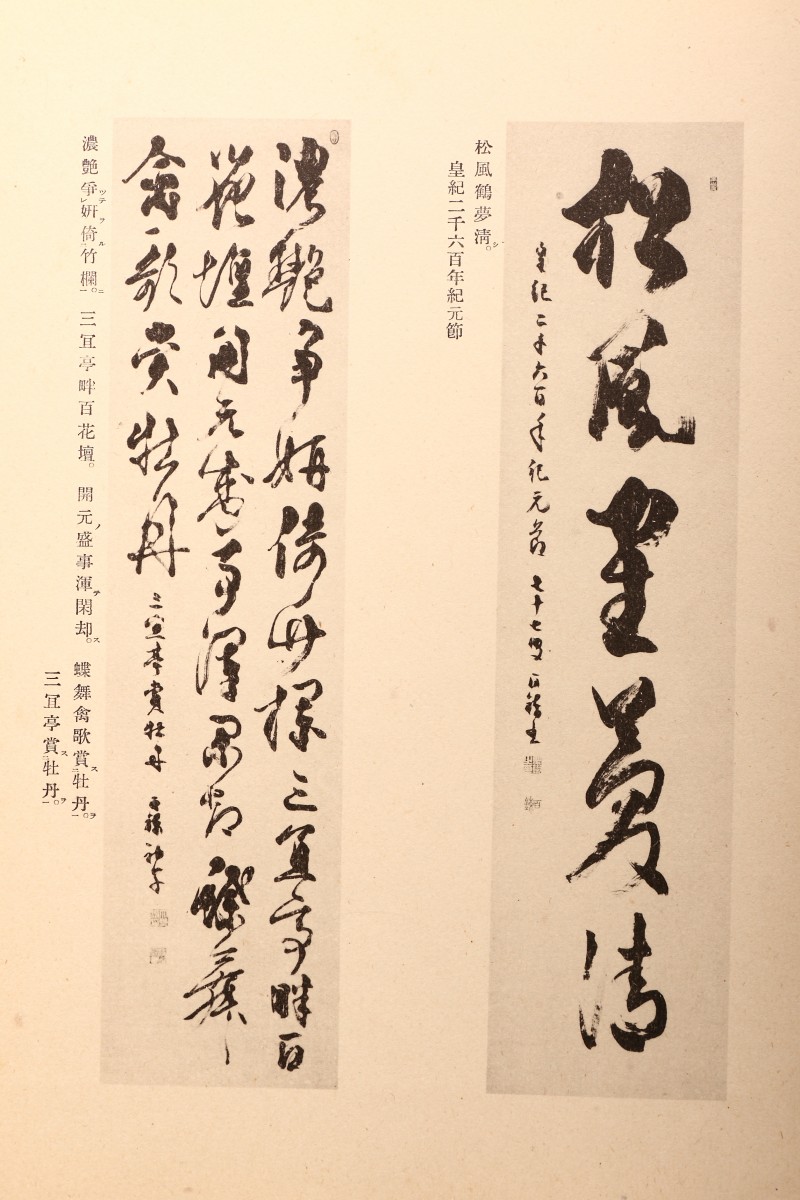 松風鶴夢清
皇紀二千六百年紀元節 七十七叟
松風鶴夢清シ。
皇紀二千六百年紀元節
濃艶争妍倚竹欄三宜亭畔百
花壇開元盛事渾閑却蝶舞
禽歌賞牡丹
三宜亭賞牡丹
濃艶争ツテレ妍ヲ倚ル二竹欄ニ一。 三冝亭畔百花壇。 開元ノ盛事渾テ閑却ス。 蝶舞禽歌賞ス二牡丹ヲ一。
三冝亭賞ス二牡丹ヲ一。